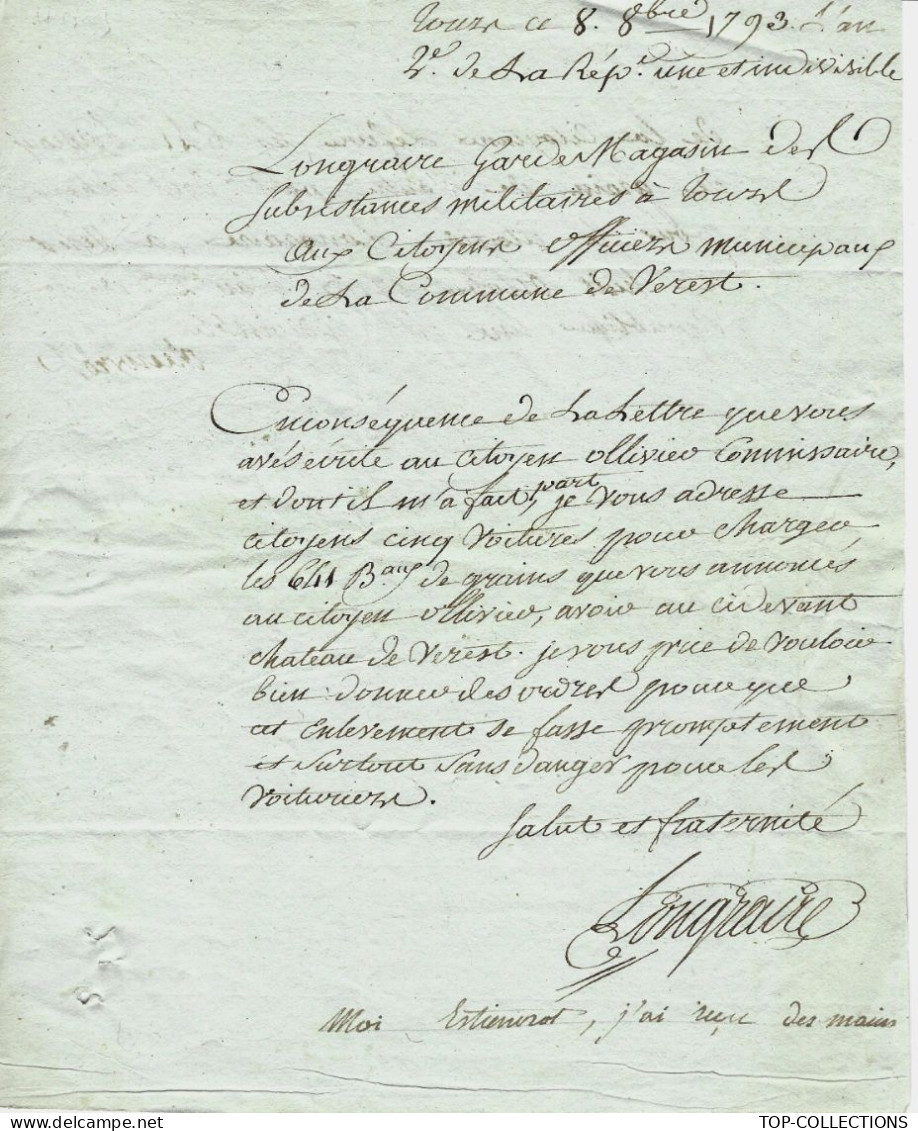 Tours ce 8. 8bre 1793. L'an
2e. de La Rép.e une et indivisible
Longraire Garde Magasin des
Subsistances militaires à Tours
aux Citoyens officiers municipaux
de La Commune de Verest.
Enconséquence de La Lettre que vous
avés écrite au citoyen ollivier Commissaire,
et dont il m'a fait part, je vous adresse
citoyens cinq voitures pour charger
les B.aux de grains que vous annoncés
au citoyen ollivier, avoir au cidevant
chateau de Verest. je vous prie de vouloir
bien donner des ordres pour que
cet Enlevement se fasse promptement
et surtout sans danger pour les
voituriers.
Salut et fraternité
Longraire
Moi Estienvrot, j'ai reçu des mains
TOP-COLLECTIONS